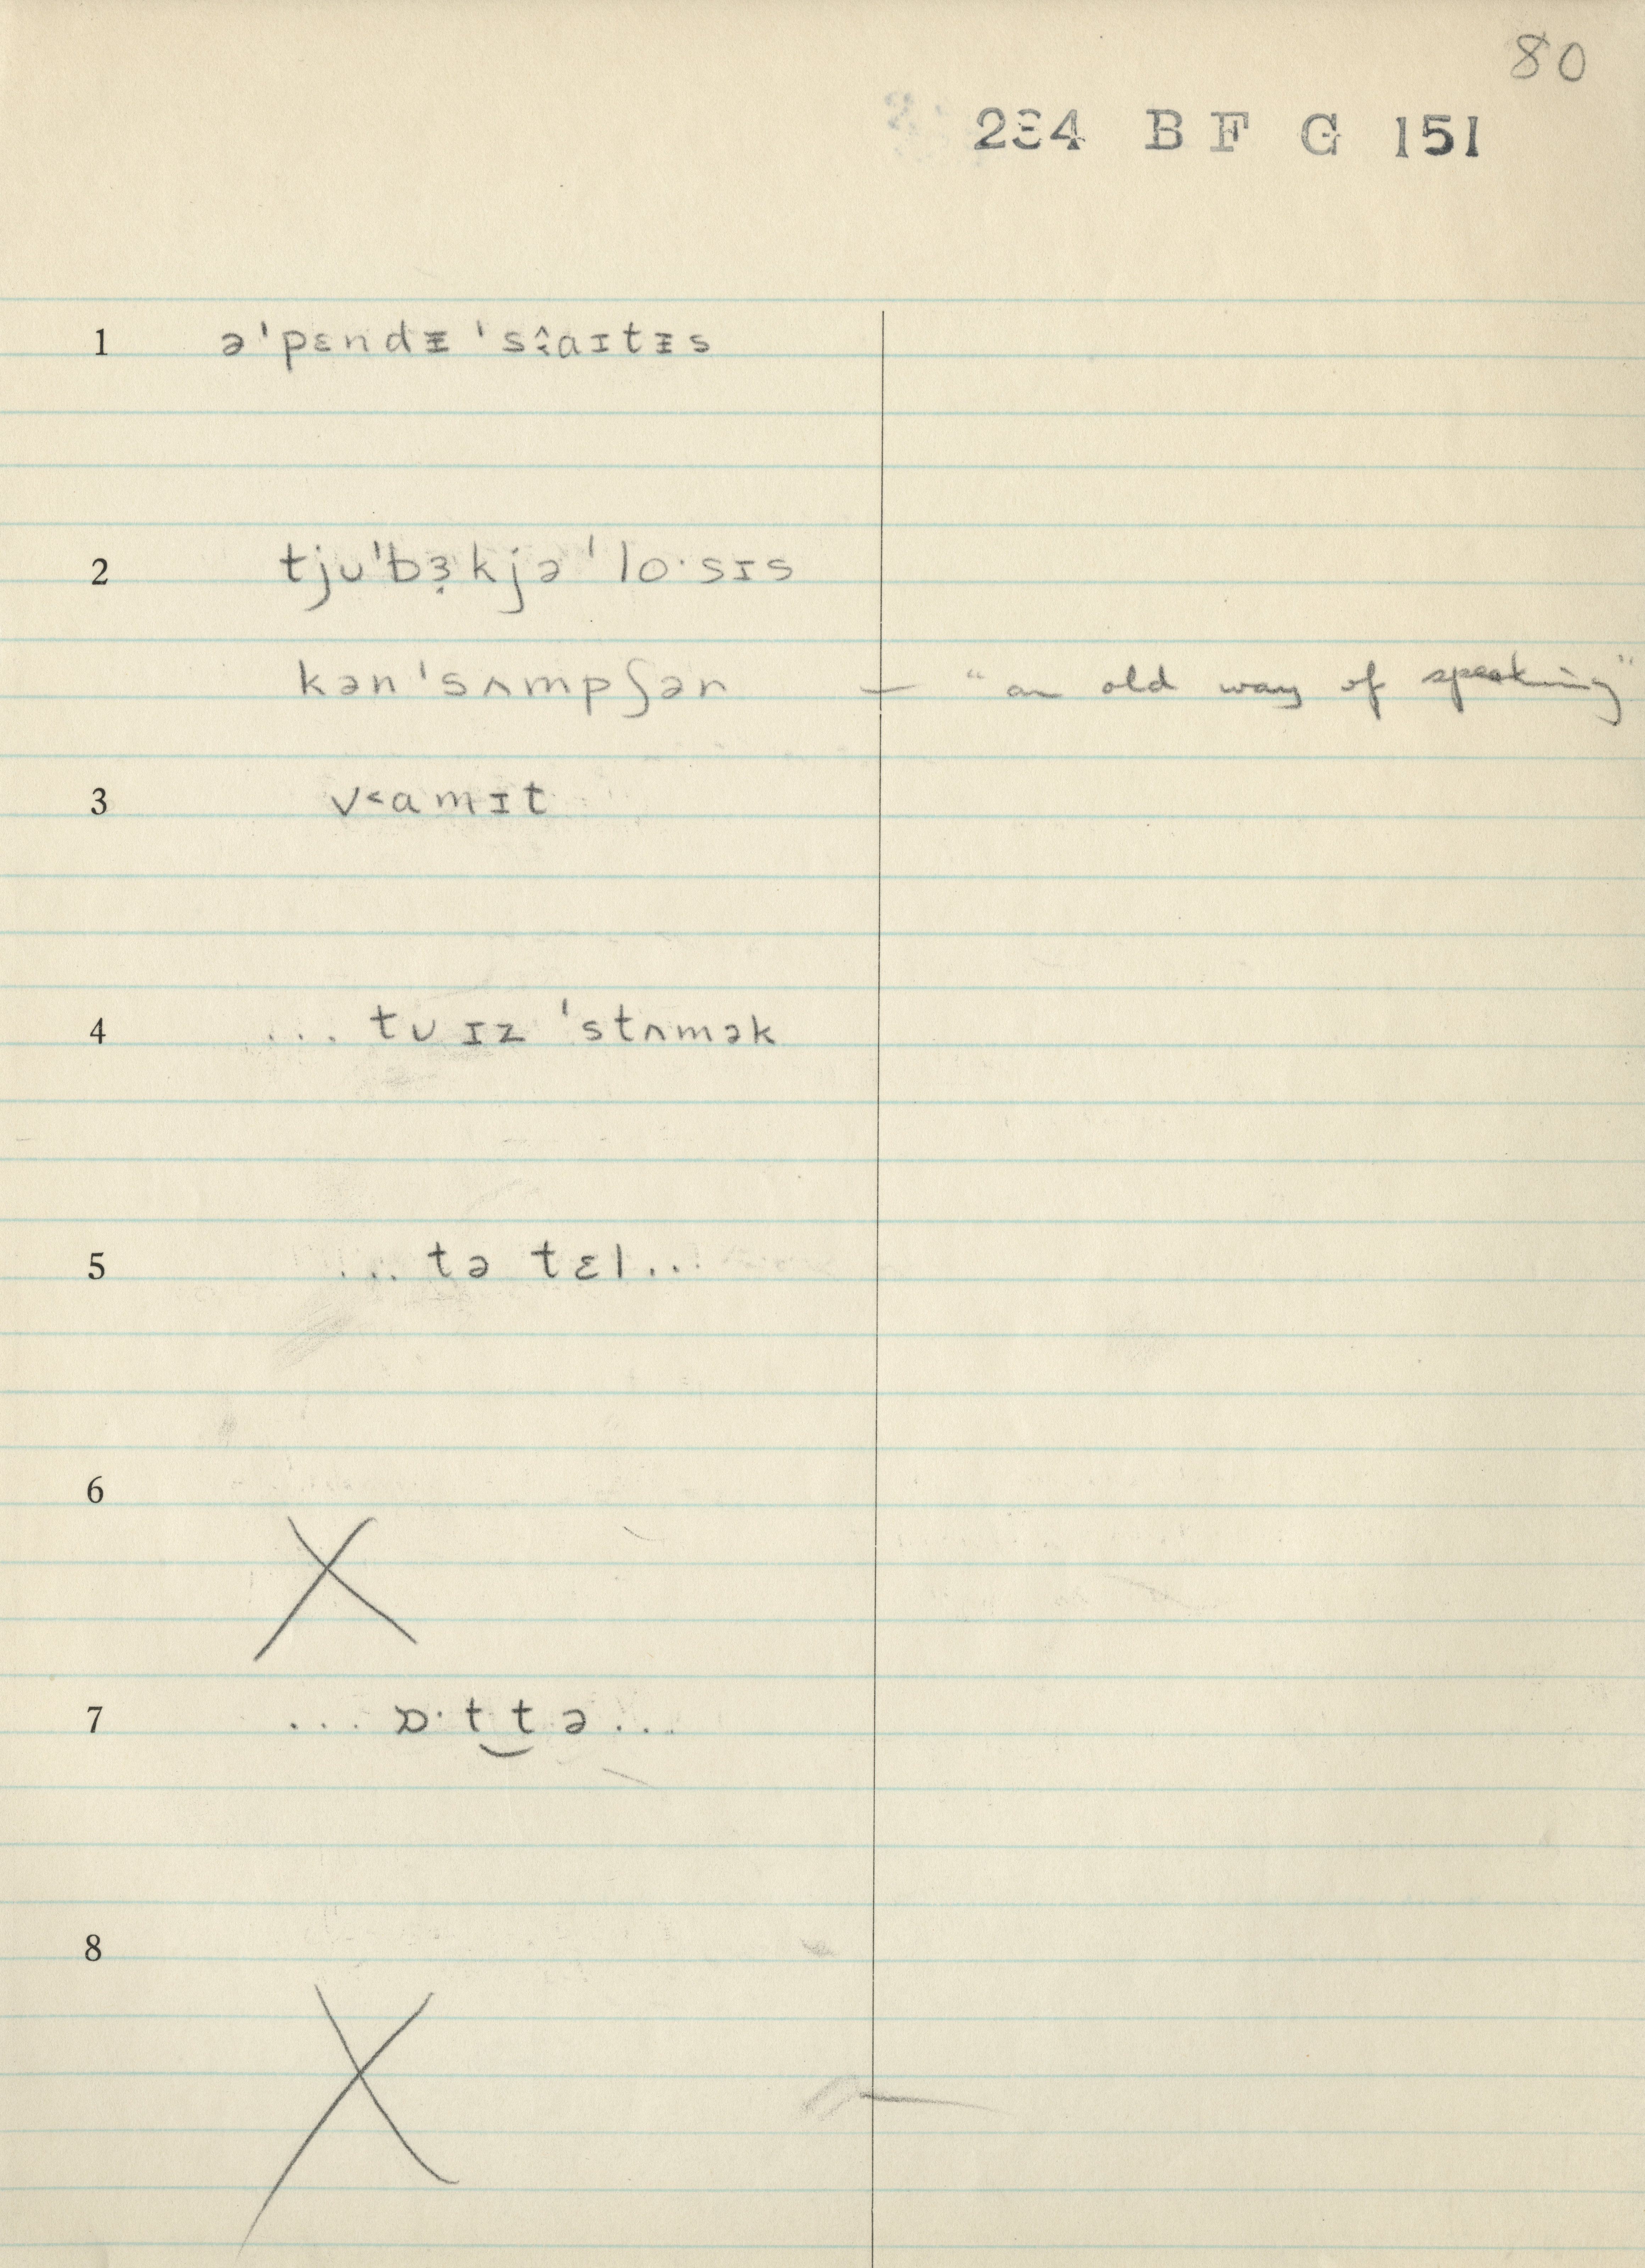 80
234 BF G 151
1 ə'pɛndᵻ'sɪ̂aɪtᵻs
2 tjᴜ'bɜ̣kjə'lo·sɪs
kən'sʌmpʃən — "an old way of speaking"
3 v˂amɪt
4 ... tᴜ ɪz 'stʌmək
5 ... tə tɛl...
6
7 ... ɒ·t‿tə...
8